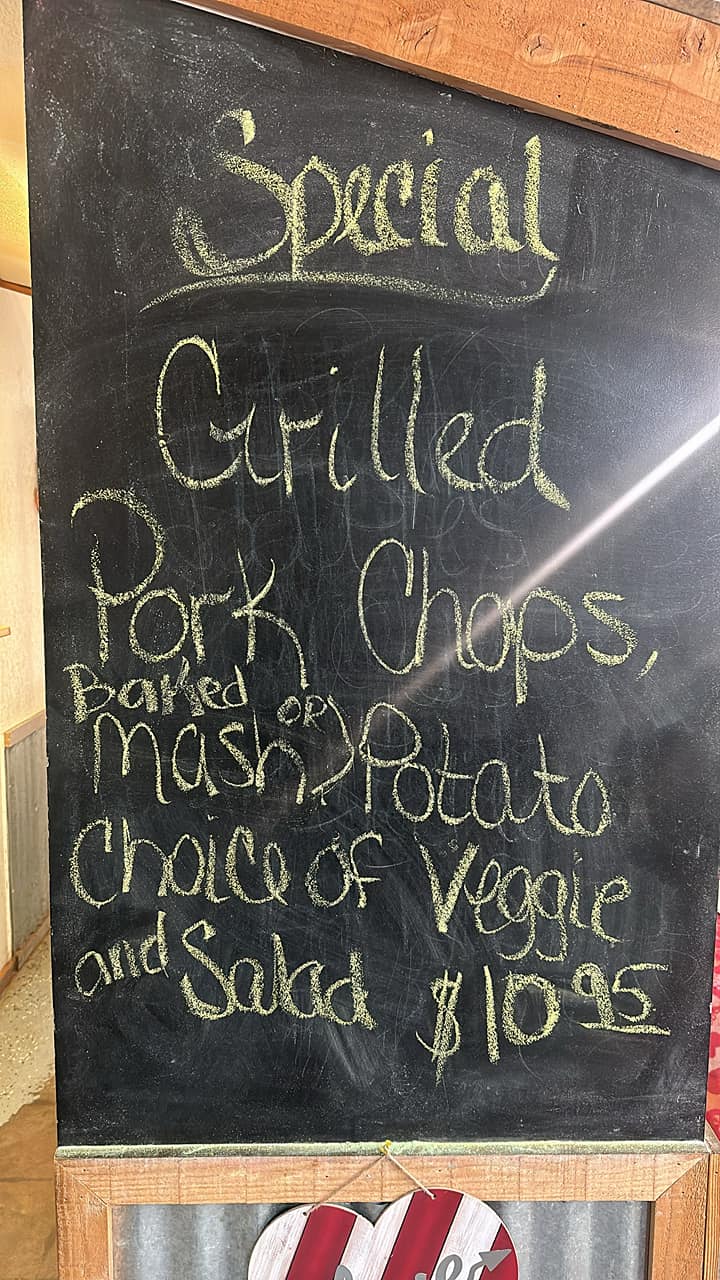 Special
Grilled
Pork Chops,
Baked OR
Mash) Potato
Choice of Veggie
and Salad $10 95